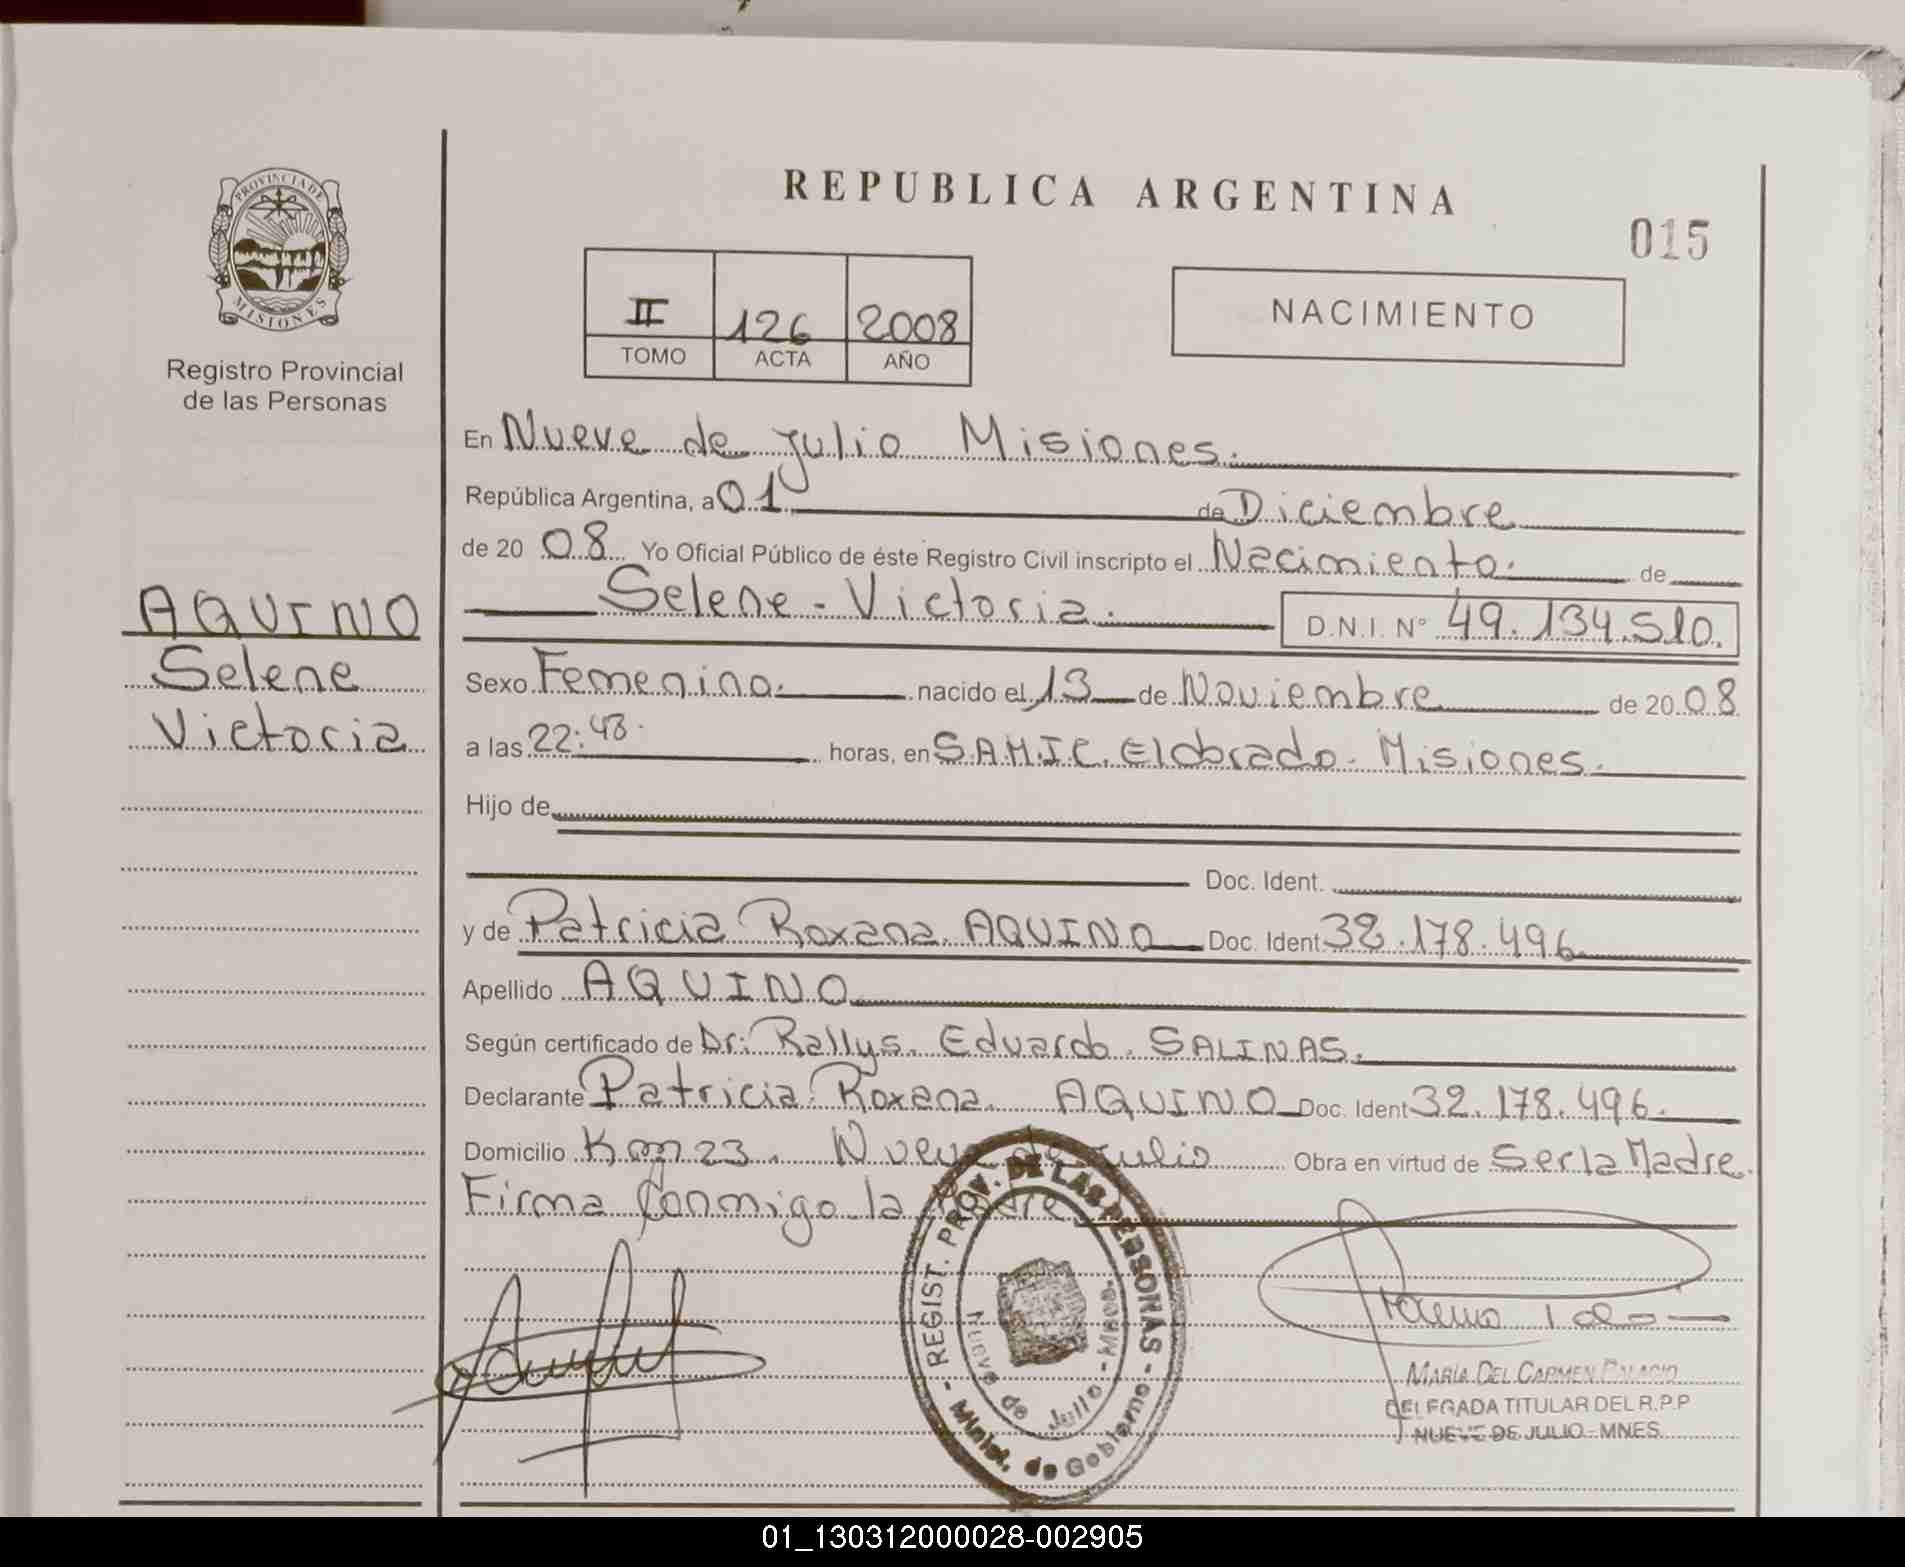 REPUBLICA ARGENTINA
015
PROVINCIA DE
MISIONES
Registro Provincial
de las Personas
II 126 2008
TOMO ACTA AÑO
NACIMIENTO
AQUINO
Selene
Victoria
En Nueve de Julio Misiones.
República Argentina, a 01 de Diciembre
de 20 08 Yo Oficial Público de éste Registro Civil inscripto el Nacimiento. de
Selene - Victoria. D.N.I. N° 49.134.510.
Sexo Femenino. nacido el 13 de Noviembre de 20 08
a las 22:48. horas, en S.A.M.I.C. Eldorado. Misiones.
Hijo de
Doc. Ident.
y de Patricia Roxana AQUINO Doc. Ident. 32.178.496
Apellido AQUINO
Según certificado de Dr: Rallys. Eduardo. SALINAS.
Declarante Patricia Roxana. AQUINO Doc. Ident 32.178.496.
Domicilio Km 23. Nueve de Julio Obra en virtud de Ser la Madre.
Firma Conmigo la Madre
REGIST. PROV. DE LAS PERSONAS
- Minist. de Gobierno -
Nueve de Julio - Mnes.
MARIA DEL CARMEN PALACIO
DELEGADA TITULAR DEL R.P.P
NUEVE DE JULIO - MNES.
01_130312000028-002905